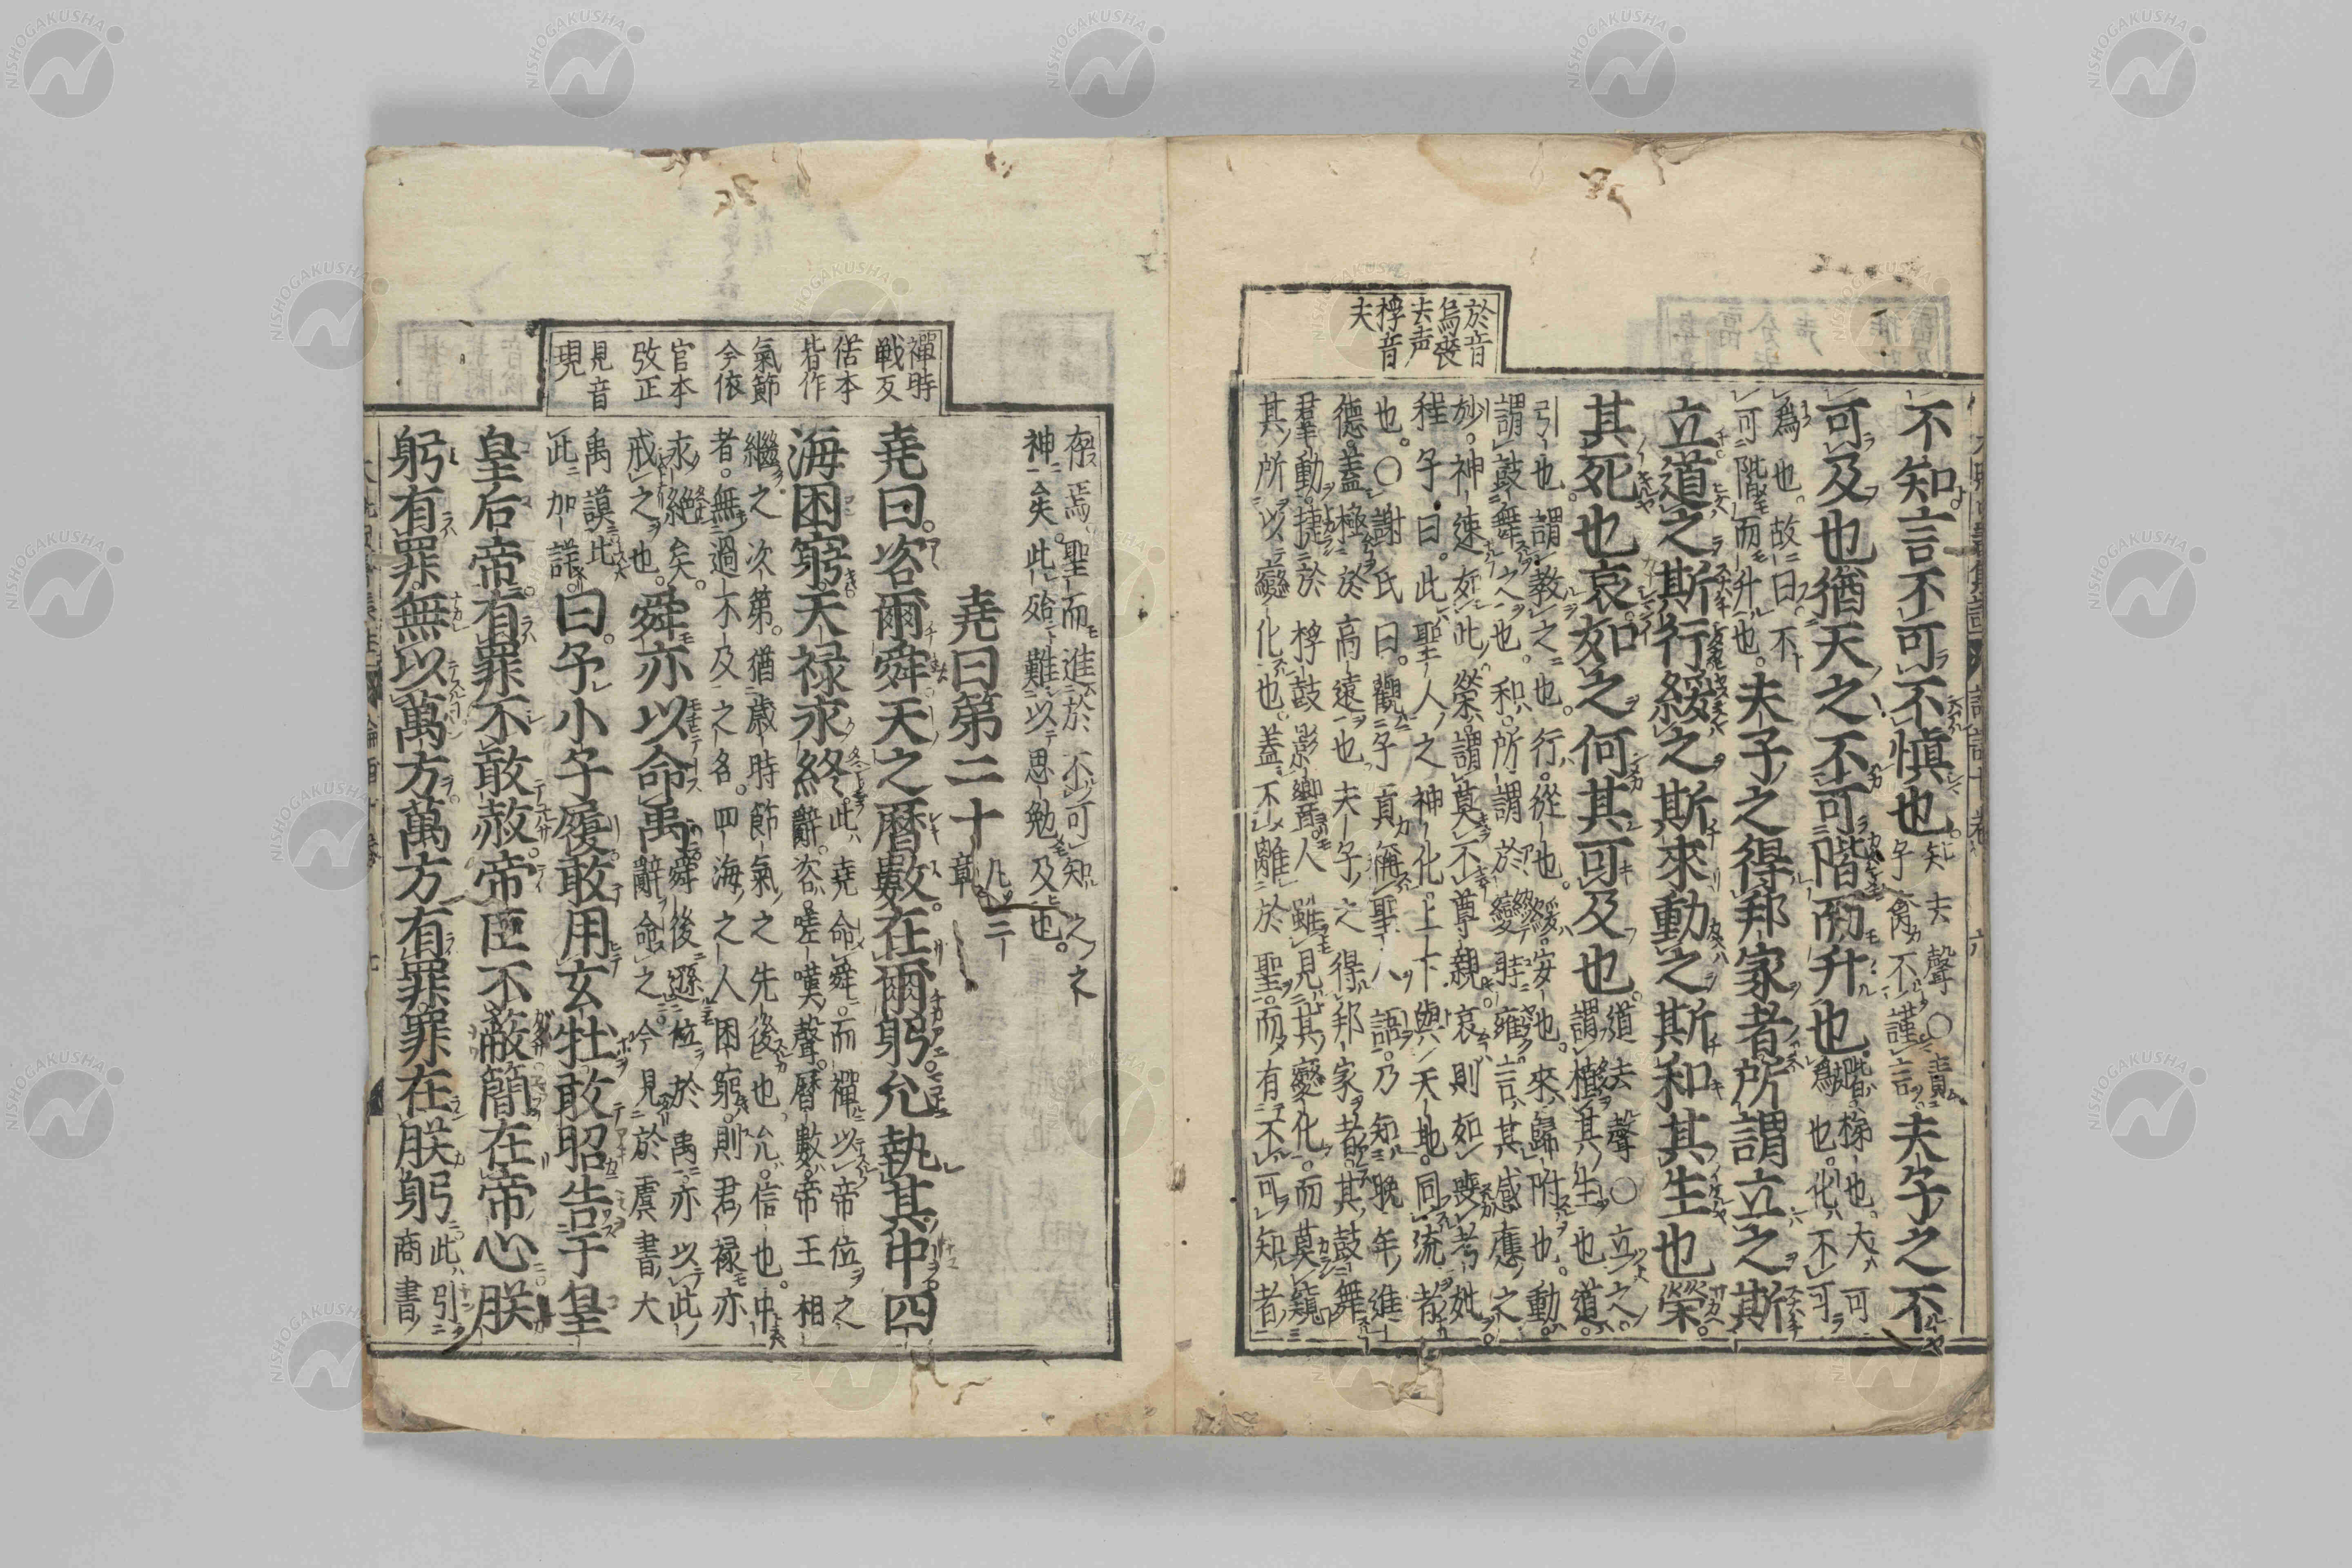 於音
烏喪
去声
桴音
夫
不知言不可不慎也知去聲○責子禽不謹言夫子之不
可及也猶天之不可階而升也階梯也大可爲也化不可
爲也故曰不可階而升也夫子之得邦家者所謂立之斯
立道之斯行綏之斯來動之斯和其生也榮
其死也哀如之何其可及也道去聲○立之謂植其生也道
引也謂教之也行從也綏安也來歸附也動
謂鼓舞之也和所謂於變時雍言其感應之
妙神速如此榮謂莫不尊親哀則如喪考妣
程子曰此聖人之神化上下與天地同流者
也○謝氏曰觀子貢稱聖人語乃知晚年進
德蓋極於高遠也夫子之得邦家者其鼓舞
羣動捷於桴鼓影響人雖見其變化而莫窺
其所以變化也蓋不離於聖而有不可知者
存焉聖而進於不可知之之
神矣此殆難以思勉及也
禪時
戦反
偌本
皆作
氣節
今依
官本
攷正
見音
現
堯曰第二十凡三章
堯曰咨爾舜天之曆數在爾躬允執其中四
海困窮天禄永終此堯命舜而禪以帝位之辭咨嗟嘆聲曆數帝王相
繼之次第猶歳時節氣之先後也允信也中
者無過不及之名四海之人困窮則君禄亦
永絕矣戒之也舜亦以命禹舜後遜位於禹亦以此辭命之今見於虞書大
禹謨此此加詳曰予小子履敢用玄牡敢昭告于皇
皇后帝有罪不敢赦帝臣不蔽簡在帝心朕
躬有罪無以萬方萬方有罪罪在朕躬此引商書